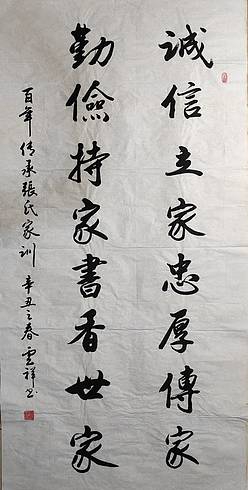 誠信立家忠厚傳家
勤儉持家書香世家
百年传承張氏家训 辛丑之春雲祥书